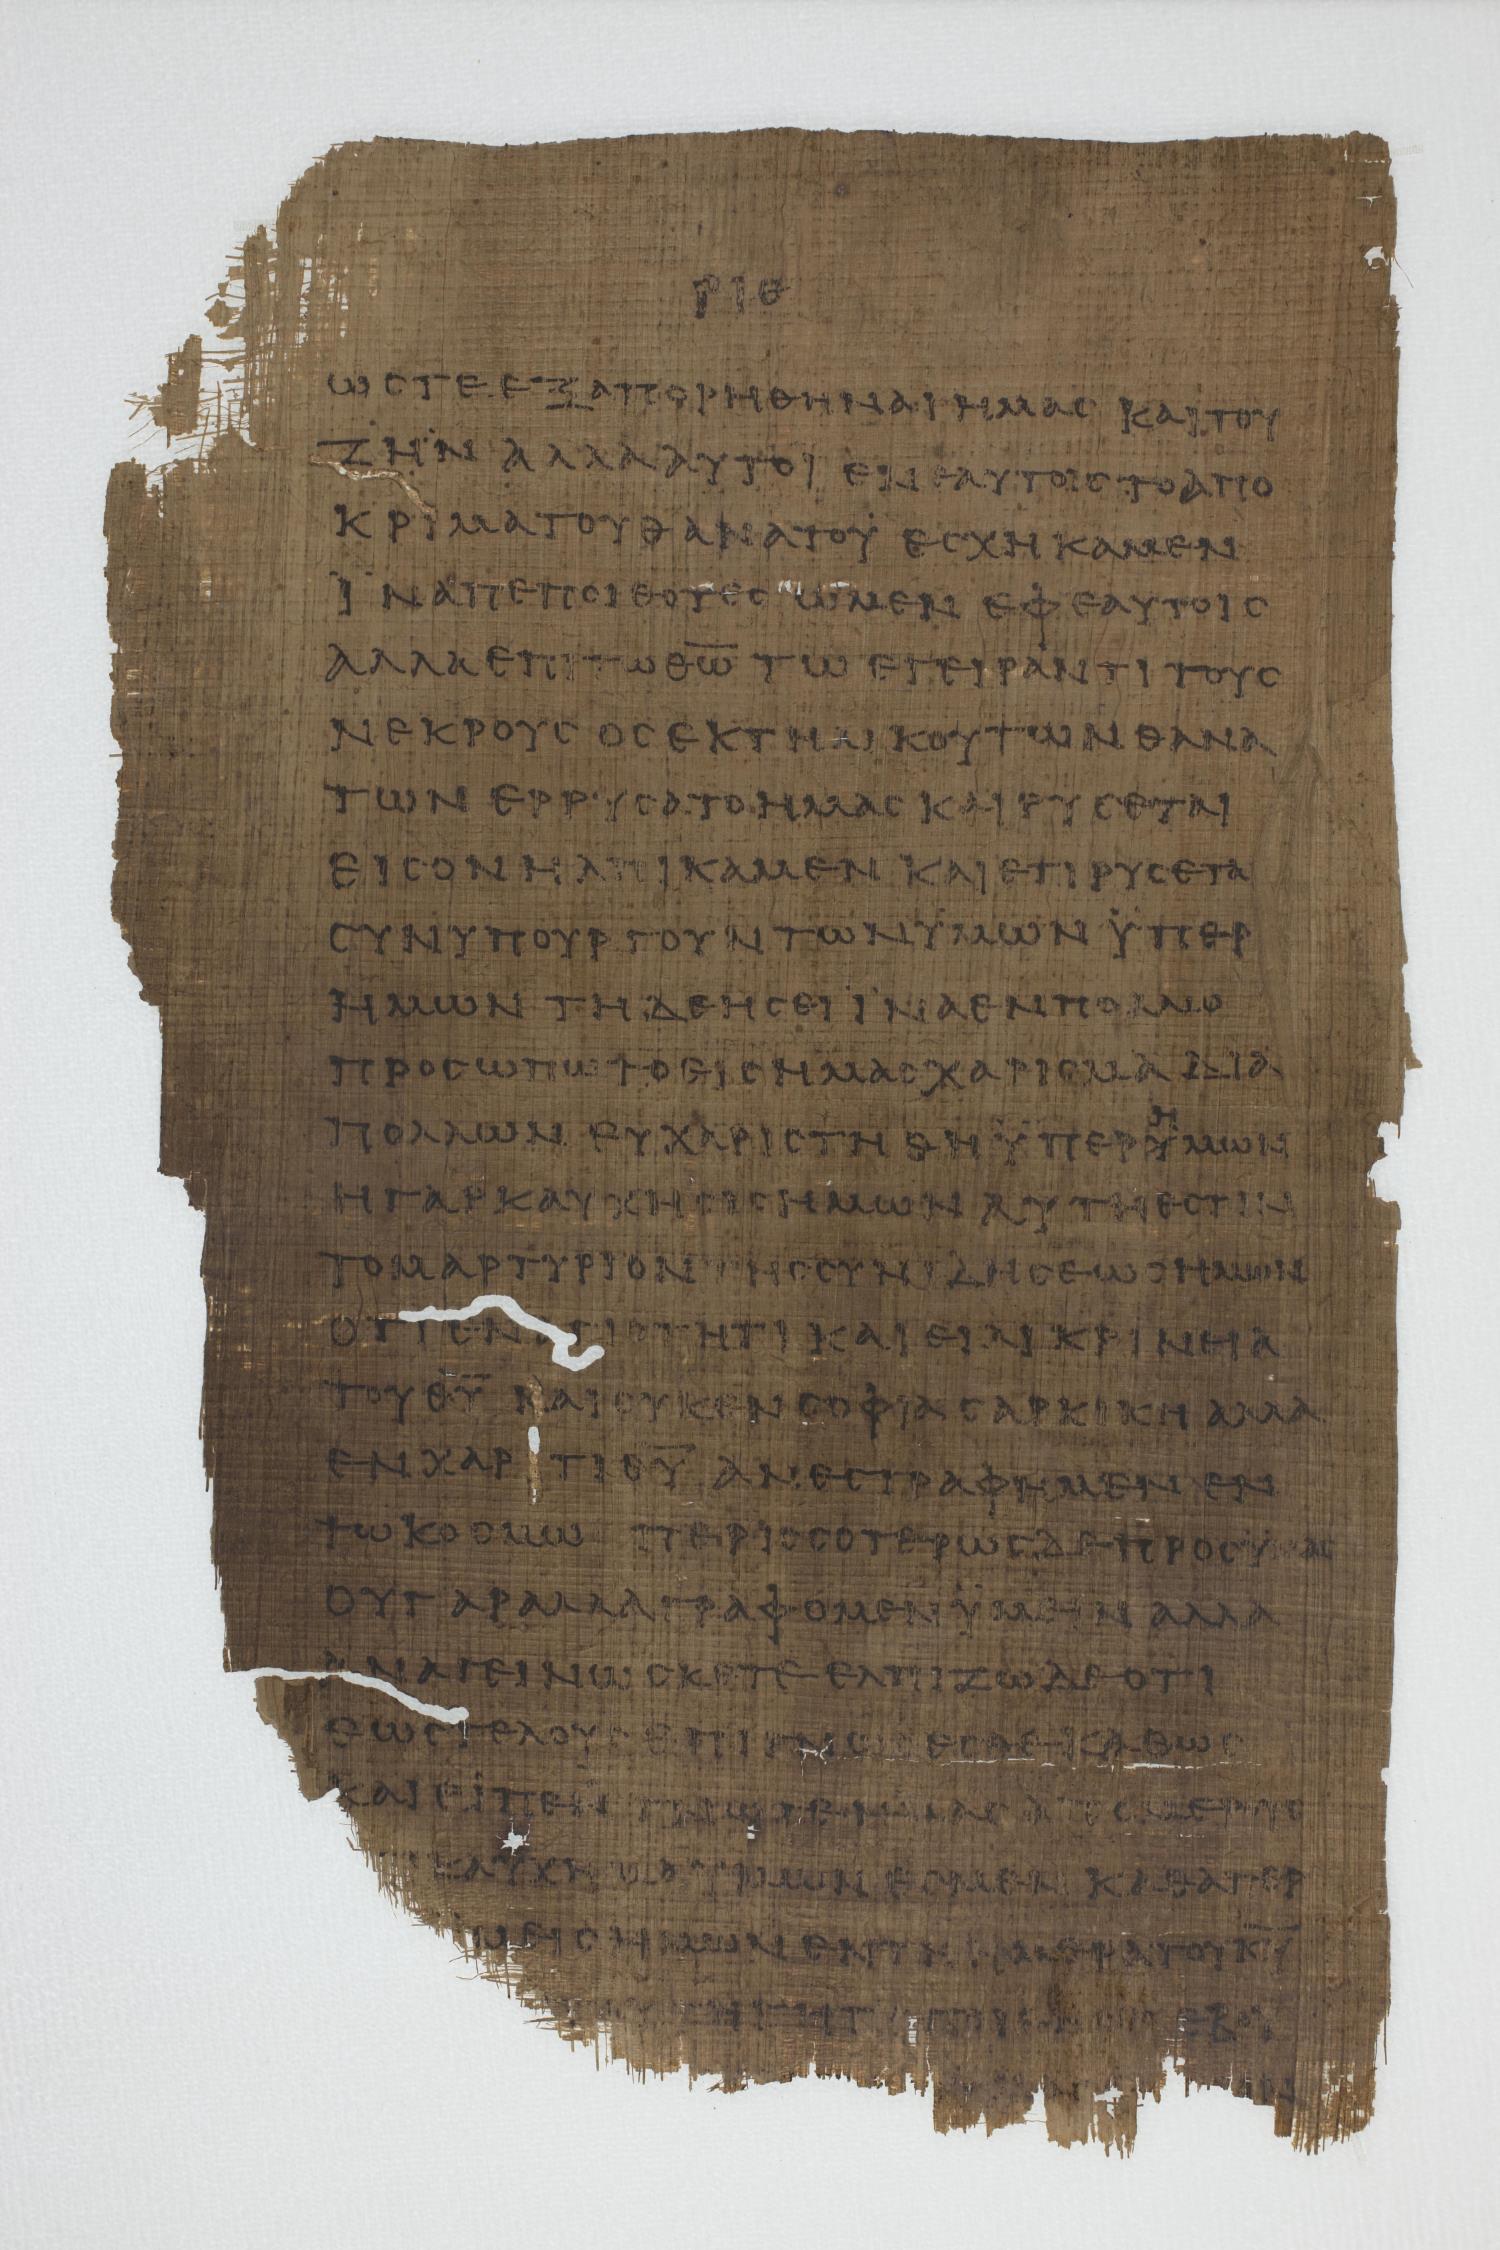 ΡΙΘ
ΩϹΤΕ ΕΞΑΠΟΡΗΘΗΝΑΙ ΗΜΑϹ ΚΑΙ ΤΟΥ
ΖΗΝ ΑΛΛΑ ΑΥΤΟΙ ΕΝ ΕΑΥΤΟΙϹ ΤΟ ΑΠΟ
ΚΡΙΜΑ ΤΟΥ ΘΑΝΑΤΟΥ ΕϹΧΗΚΑΜΕΝ
ΪΝΑ ΠΕΠΟΙΘΟΤΕϹ ΩΜΕΝ ΕΦ ΕΑΥΤΟΙϹ
ΑΛΛΑ ΕΠΙ ΤΩ Θ̅Ω̅ ΤΩ ΕΓΕΙΡΑΝΤΙ ΤΟΥϹ
ΝΕΚΡΟΥϹ ΟϹ ΕΚ ΤΗΛΙΚΟΥΤΩΝ ΘΑΝΑ
ΤΩΝ ΕΡΡΥϹΑΤΟ ΗΜΑϹ ΚΑΙ ΡΥϹΕΤΑΙ
ΕΙϹ ΟΝ ΗΛΠΙΚΑΜΕΝ ΚΑΙ ΕΤΙ ΡΥϹΕΤΑ
ϹΥΝΥΠΟΥΡΓΟΥΝΤΩΝ ΫΜΩΝ ΫΠΕΡ
ΗΜΩΝ ΤΗ ΔΕΗϹΕΙ ΪΝΑ ΕΝ ΠΟΛΛΩ
ΠΡΟϹΩΠΩ ΤΟ ΕΙϹ ΗΜΑϹ ΧΑΡΙϹΜΑ ΔΙΑ
ΠΟΛΛΩΝ ΕΥΧΑΡΙϹΤΗΘΗ ΫΠΕΡ ΫΜΩΝ
Η ΓΑΡ ΚΑΥΧΗϹΙϹ ΗΜΩΝ ΑΥΤΗ ΕϹΤΙΝ
ΤΟ ΜΑΡΤΥΡΙΟΝ ΤΗϹ ϹΥΝΙΔΗϹΕΩϹ ΗΜΩΝ
ΟΤΙ ΕΝ ΑΓΙΟΤΗΤΙ ΚΑΙ ΕΙΛΙΚΡΙΝΗΑ
ΤΟΥ Θ̅Υ̅ ΚΑΙ ΟΥΚ ΕΝ ϹΟΦΙΑ ϹΑΡΚΙΚΗ ΑΛΛΑ
ΕΝ ΧΑΡΙΤΙ Θ̅Υ̅ ΑΝΕϹΤΡΑΦΗΜΕΝ ΕΝ
ΤΩ ΚΟϹΜΩ ΠΕΡΙϹϹΟΤΕΡΩϹ ΔΕ ΠΡΟϹ ΫΜΑϹ
ΟΥ ΓΑΡ ΑΛΛΑ ΓΡΑΦΟΜΕΝ ΫΜΕΙΝ ΑΛΛΑ
ΑΝΑΓΕΙΝΩϹΚΕΤΕ ΕΛΠΙΖΩ ΔΕ ΟΤΙ
ΕΩϹ ΤΕΛΟΥϹ ΕΠΙΓΝΩϹΕϹΘΕ ΚΑΘΩϹ
ΚΑΙ ΕΠΕΓΝΩΤΕ ΗΜΑϹ ΑΠΟ ΜΕΡΟΥϹ
ΚΑΥΧΗΜΑ ΫΜΩΝ ΕϹΜΕΝ ΚΑΘΑΠΕΡ
ΫΜΕΙϹ ΗΜΩΝ ΕΝ ΤΗ ΗΜΕΡΑ ΤΟΥ Κ̅Υ̅